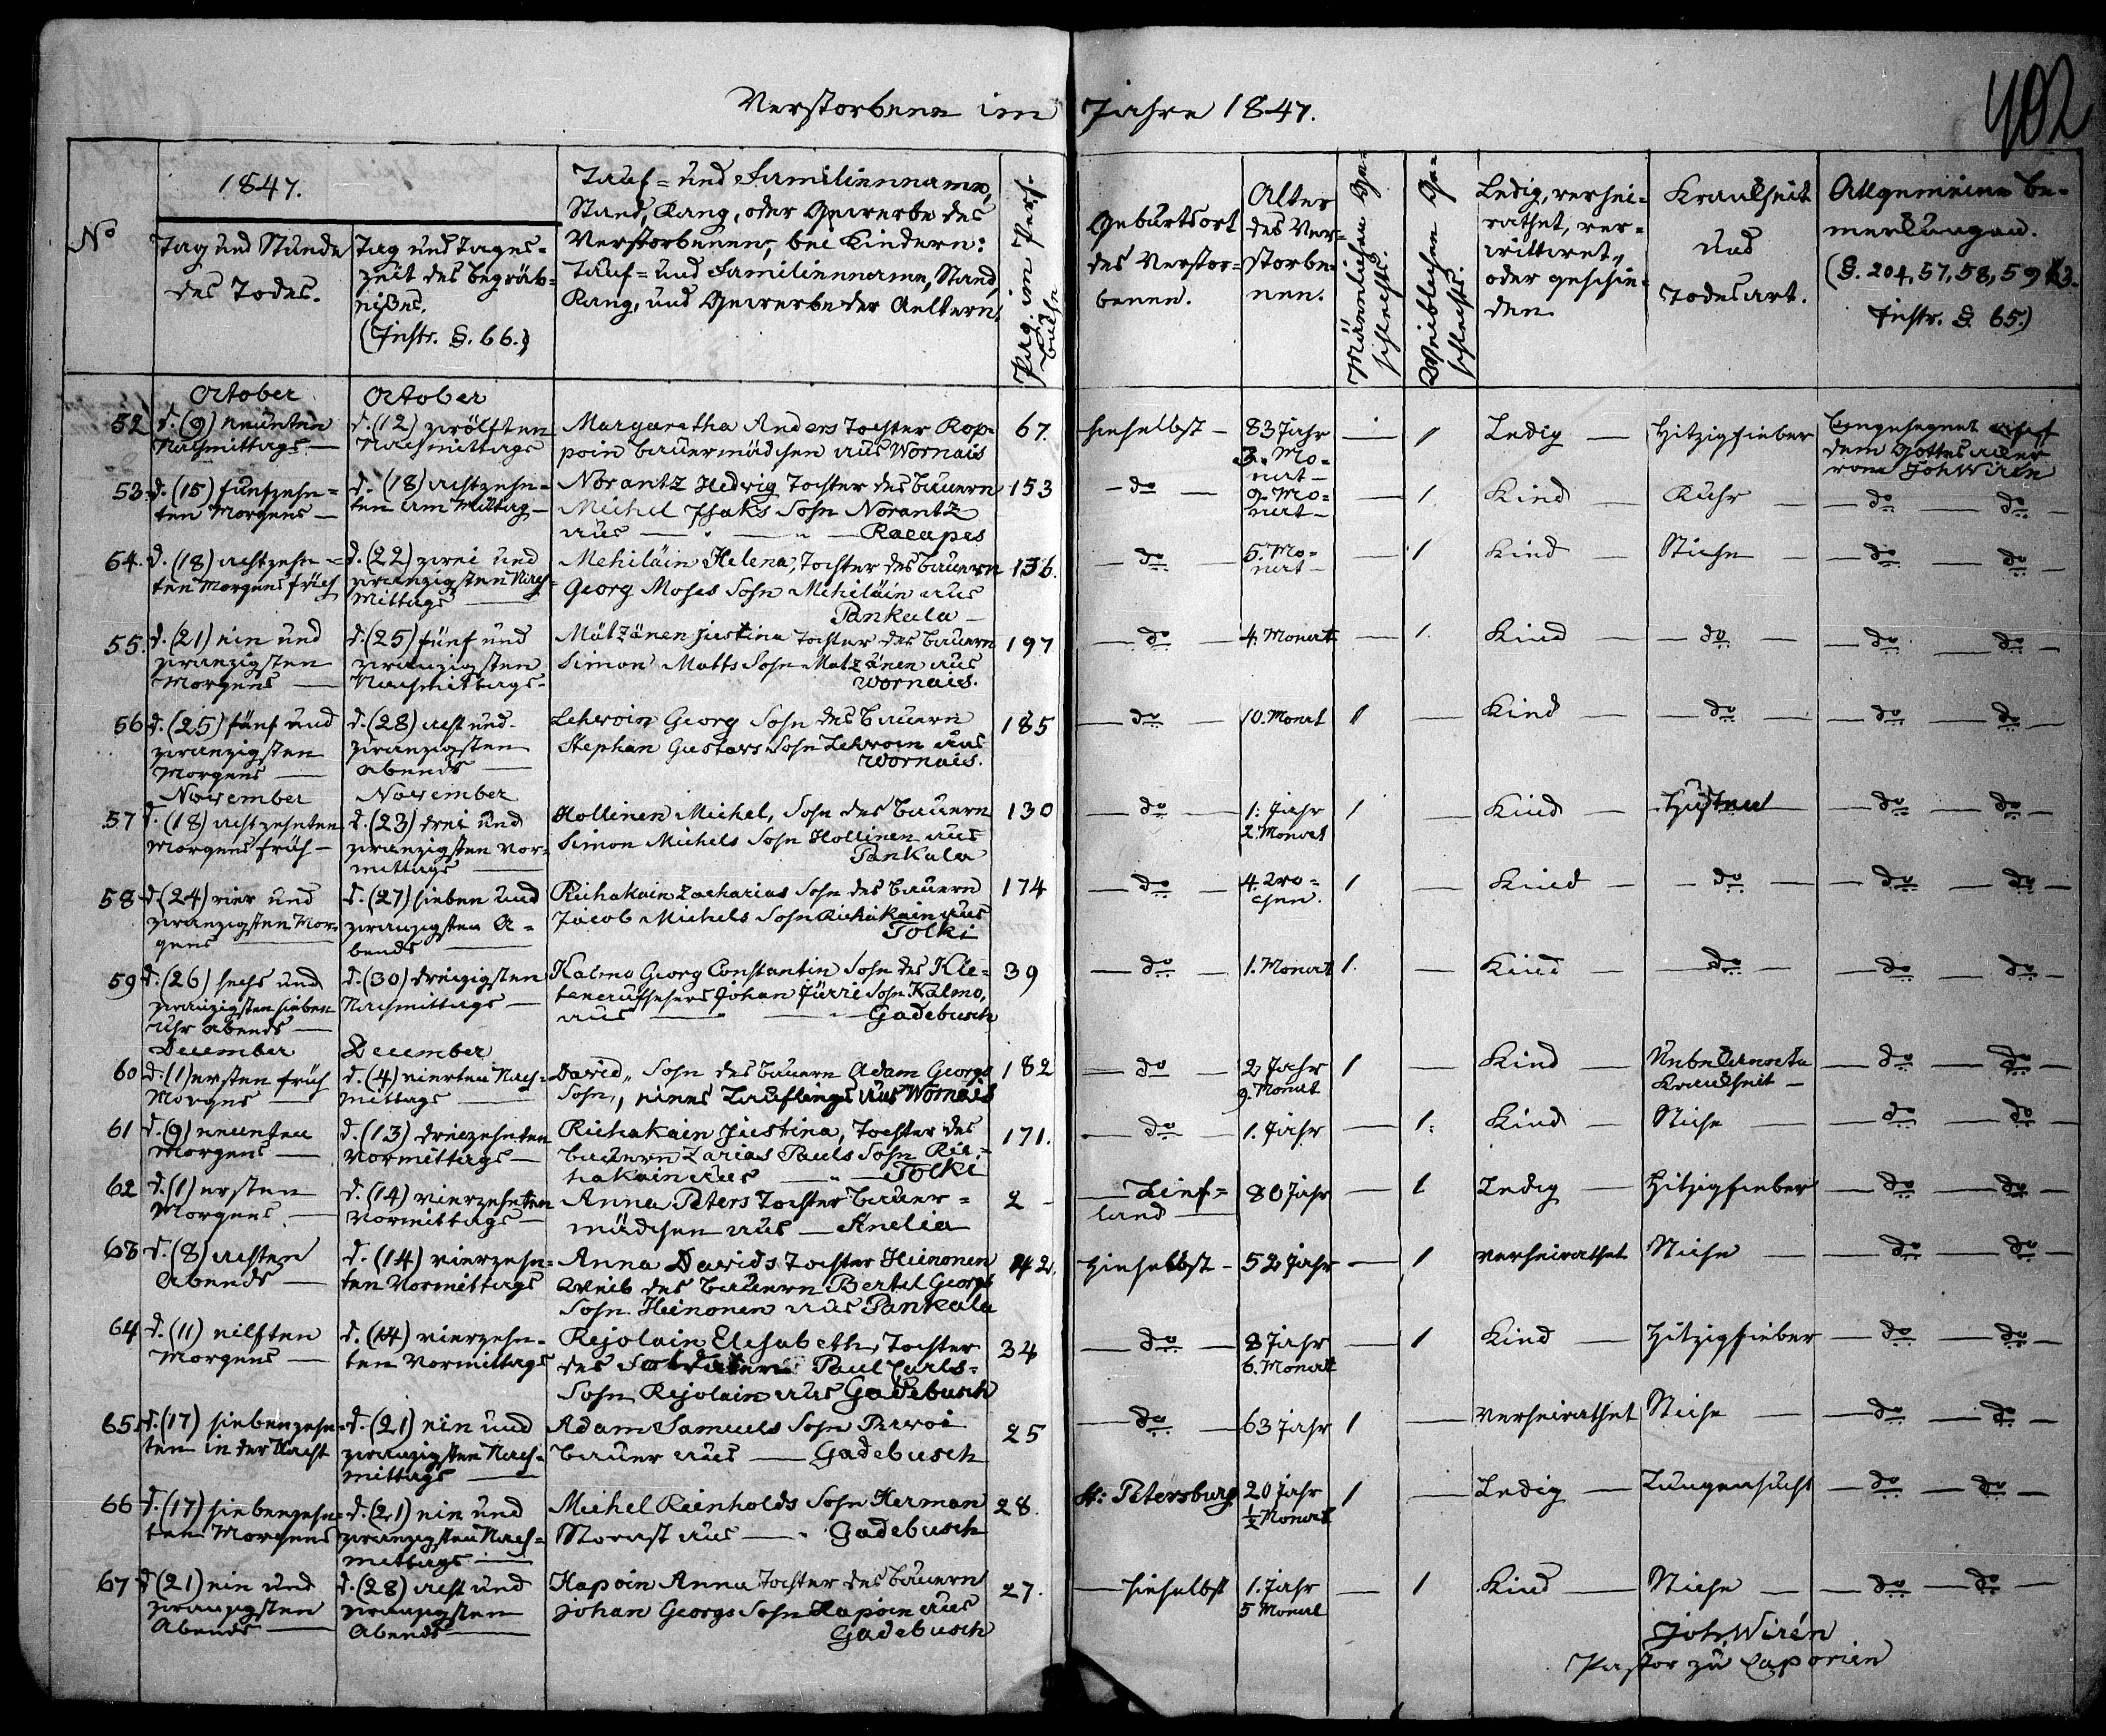 402
Verstorbene im Jahre 1847.
No
1847.
Tag und Stunde
des Todes.
Tag und Tages-
zeit des Begräb-
nißes.
(Instr. §. 66.)
Tauf- und Familiennname,
Stand, Rang, oder Gewerbe des
Verstorbenen; bei Kindern:
Tauf- und Familiennname, Stand,
Rang, und Gewerbe der Aeltern.
Pag. im Pers.
buche
Geburtsort
des Verstor-
benen.
Alter
des Ver-
storbe-
nen.
Männlichen Ge-
schlechts.
Weiblichen Ge-
schlechts.
Ledig, verhei-
rathet, ver-
wittwet,
oder geschie-
den
Krankheit
und
Todesart.
Allgemeine Be-
merkungen.
(§. 204, 57, 58, 59
Instr. §. 65.)
October October
52 d. (9) neunten d. (12) zwölften Margaretha Anders Tochter Rop- 67. hieselbst – 83 Jahr — 1 Ledig — Hitzigfieber
Nachmittags — Nachmittags poin Bauermädchen aus Wornais 3. Mo-
nat –
dem Gottesacker
vom Joh Wiren
53. d. (15) funfzehn- d. (18) achtzehn- Norantz Hedvig Tochter des Bauern 153 – do — 9. Mo- — 1. Kind — Ruhr — do — do —
ten Morgens — ten am Mittag — Michel Isaks Sohn Norantz nat –
aus — " — Racapes
54. d. (18) achtzehn- d. (22) zwei und Mehiläin Helena, Tochter des Bauern 136. — do — 5. Mo- — 1 Kind — Stiche — do — do —
ten Morgens früh zwanzigsten Nach- Georg Moses Sohn Mehiläin aus nat –
Mittags — Pankala –
55. d. (21) ein und d. (25) fünf und Mätzänen Justina Tochter des Bauern 197 — do — 4. Monat — 1. Kind — do — do — do —
zwanzigsten zwanzigsten Simon Matts Sohn Mätzänen aus
Morgens — Nachmittags- Wornais.
56 d. (25) fünf und d. (28) acht und Lehwoin Georg Sohn des Bauern 185 — do — 10. Monat 1 — Kind — do — do — do —
zwanzigsten zwanzigsten Stephan Gustavs Sohn Lehwoin aus
Morgens — Abends — Wornais.
November November
57 d. (18) achtzehnten d. (23) drei und Hollinen Michel, Sohn des Bauern 130 — do — 1. Jahr 1 — Kind — Husten — do — do —
Morgens früh — zwanzigsten Vor- Simon Michels Sohn Hollinen aus 2. Monat
mittags — Pankala
58 d. (24) vier und d. (27) sieben und Richakain Zacharias Sohn des Bauern 174 — do — 4. Wo- 1 — Kind — do — do — do —
zwanzigsten Mor- zwanzigsten A- Jacob Michels Sohn Richakain aus chen.
gens — bends — Tolki
59 d. (26) sechs und d. (30) dreizigsten Kalmo Georg Constantin Sohn des Kle- 39 — do — 1. Monat 1. — Kind — do — do — do —
zwanzigsten sieben Nachmittags — tenaufsehers Johan Jürri Sohn Kalmo,
Uhr Abends — aus — " — Gadebusch
December December
60 d. (1) ersten früh d. (4) vierten Nach- David, Sohn des Bauern Adam Georgs 182 — do — 2 Jahr 1 — Kind Unbekannte — do — do —
Morgens — mittags — Sohn, eines Läuflings aus Wornais 9. Monat Krankheit –
61 d. (9) neunten d. (13) dreizehnten Richakain Justina, Tochter des 171. — do — 1. Jahr — 1. Kind — Stiche — do — do —
Morgens — Vormittags — Bauern Zarias Pauls Sohn Ric-
hakain aus — " — Tolki
62 d. (1) ersten d. (14) vierzehnten Anna Peters Tochter Bauer- 2 – — Lief- 80 Jahr — 1 Ledig — Hitzigfieber — do — do —
Morgens — Vormittags — mädchen aus — Anelia land —
63 d. (8) achten d. (14) vierzehn- Anna Davids Tochter Heinonen 142. Hieselbst – 52 Jahr — 1 verheirathet Stiche — do — do —
Abends — ten Vormittags Weib des Bauern Bertil Georgs
Sohn Heinonen aus Pankala
64 d. (11) eilften d. (14) vierzehn- Rejolain Elisabeth, Tochter 34 — do — 8 Jahr — 1 Kind — Hitzigfieber — do — do —
Morgens — ten Vormittags des Soldaten Paul Carls- 6. Monat
Sohn Rejolain aus Gadebusch
65. d. (17) siebenzehn- d. (21) ein und Adam Samuels Sohn Parwoi 25 — do — 63 Jahr 1 — Verheirathet Stiche — do — do —
ten in der Nacht zwanzigsten Nach- Bauer aus — Gadebusch
mittags —
66 d. (17) siebenzehn- d. (21) ein und Michel Reinholds Sohn Herman 28. St: Petersburg 20 Jahr 1 — Ledig — Lungensucht — do — do —
ten Morgens zwanzigsten Nach- Storast aus — Gadebusch ½ Monat
mittags —
67 d. (21) ein und d. (28) acht und Hapoin Anna Tochter des Bauern 27. — hieselbst 1. Jahr — 1 Kind — Stiche — do — do —
zwanzigsten zwanzigsten Johan Georgs Sohn Hapoin aus 5 Monat
Abends — Abends — Gadebusch
Joh Wirén
Pastor zu Caporien